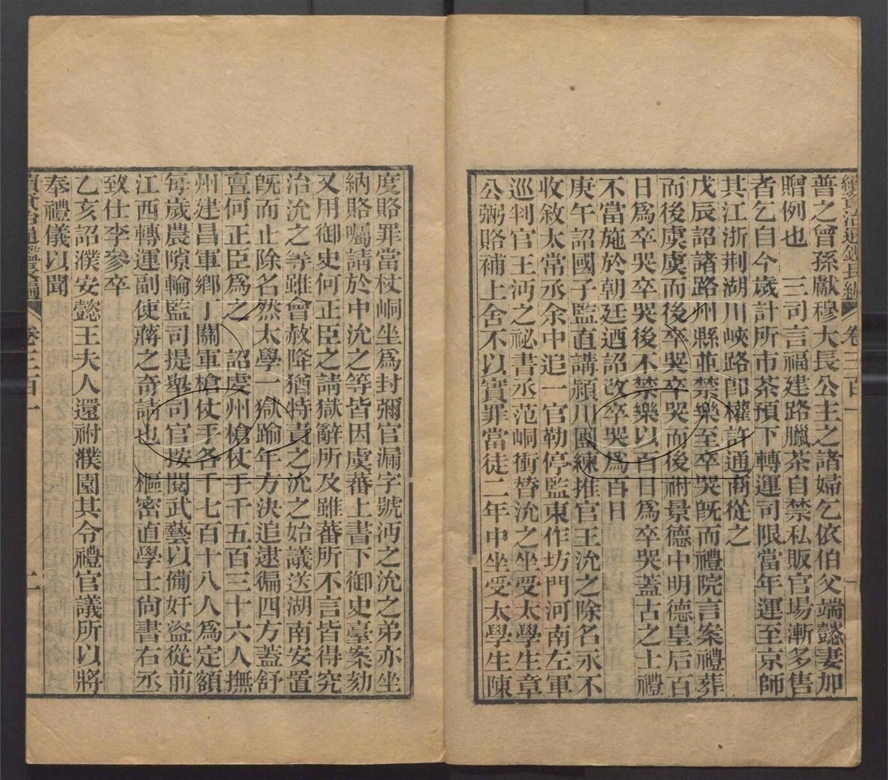 續資治通鑑長編 卷三百一
普之曾孫獻穆大長公主之諸婦乞依伯父端懿妻加
贈例也 三司言福建路臘茶自禁私販官場漸多售
者乞自今歲計所市茶預下轉運司限當年運至京師
其江浙荆湖川峽路卽權許通商從之
戊辰詔諸路州縣並禁樂至卒哭旣而禮院言案禮葬
而後虞虞而後卒哭卒哭而後祔景德中明德皇后百
日爲卒哭卒哭後不禁樂以百日爲卒哭蓋古之士禮
不當施於朝廷迺詔改卒哭爲百日
庚午詔國子監直講潁川團練推官王沇之除名永不
收敘太常丞余中追一官勒停監東作坊門河南左軍
巡判官王沔之祕書丞范峒衝替沇之坐受太學生章
公弼賂補上舍不以實罪當徒二年中坐受太學生陳
度賂罪當杖峒坐爲封彌官漏字號沔之沇之弟亦坐
納賂囑請於中沇之等皆因虞蕃上書下御史臺案劾
又用御史何正臣之請獄辭所及雖蕃所不言皆得究
治沇之等雖會赦降猶特責之沇之始議送湖南安置
旣而止除名然太學一獄踰年方決追逮徧四方蓋舒
亶何正臣爲之 詔虔州槍仗手千五百三十六人撫
州建昌軍鄕丁關軍槍仗手各千七百十八人爲定額
每歲農隙輪監司提舉司官按閱武藝以備奸盜從前
江西轉運副使蔣之奇請也 樞密直學士尙書右丞
致仕李參卒
乙亥詔濮安懿王夫人還祔濮園其令禮官議所以將
奉禮儀以聞
續資治通鑑長編 卷三百一 二